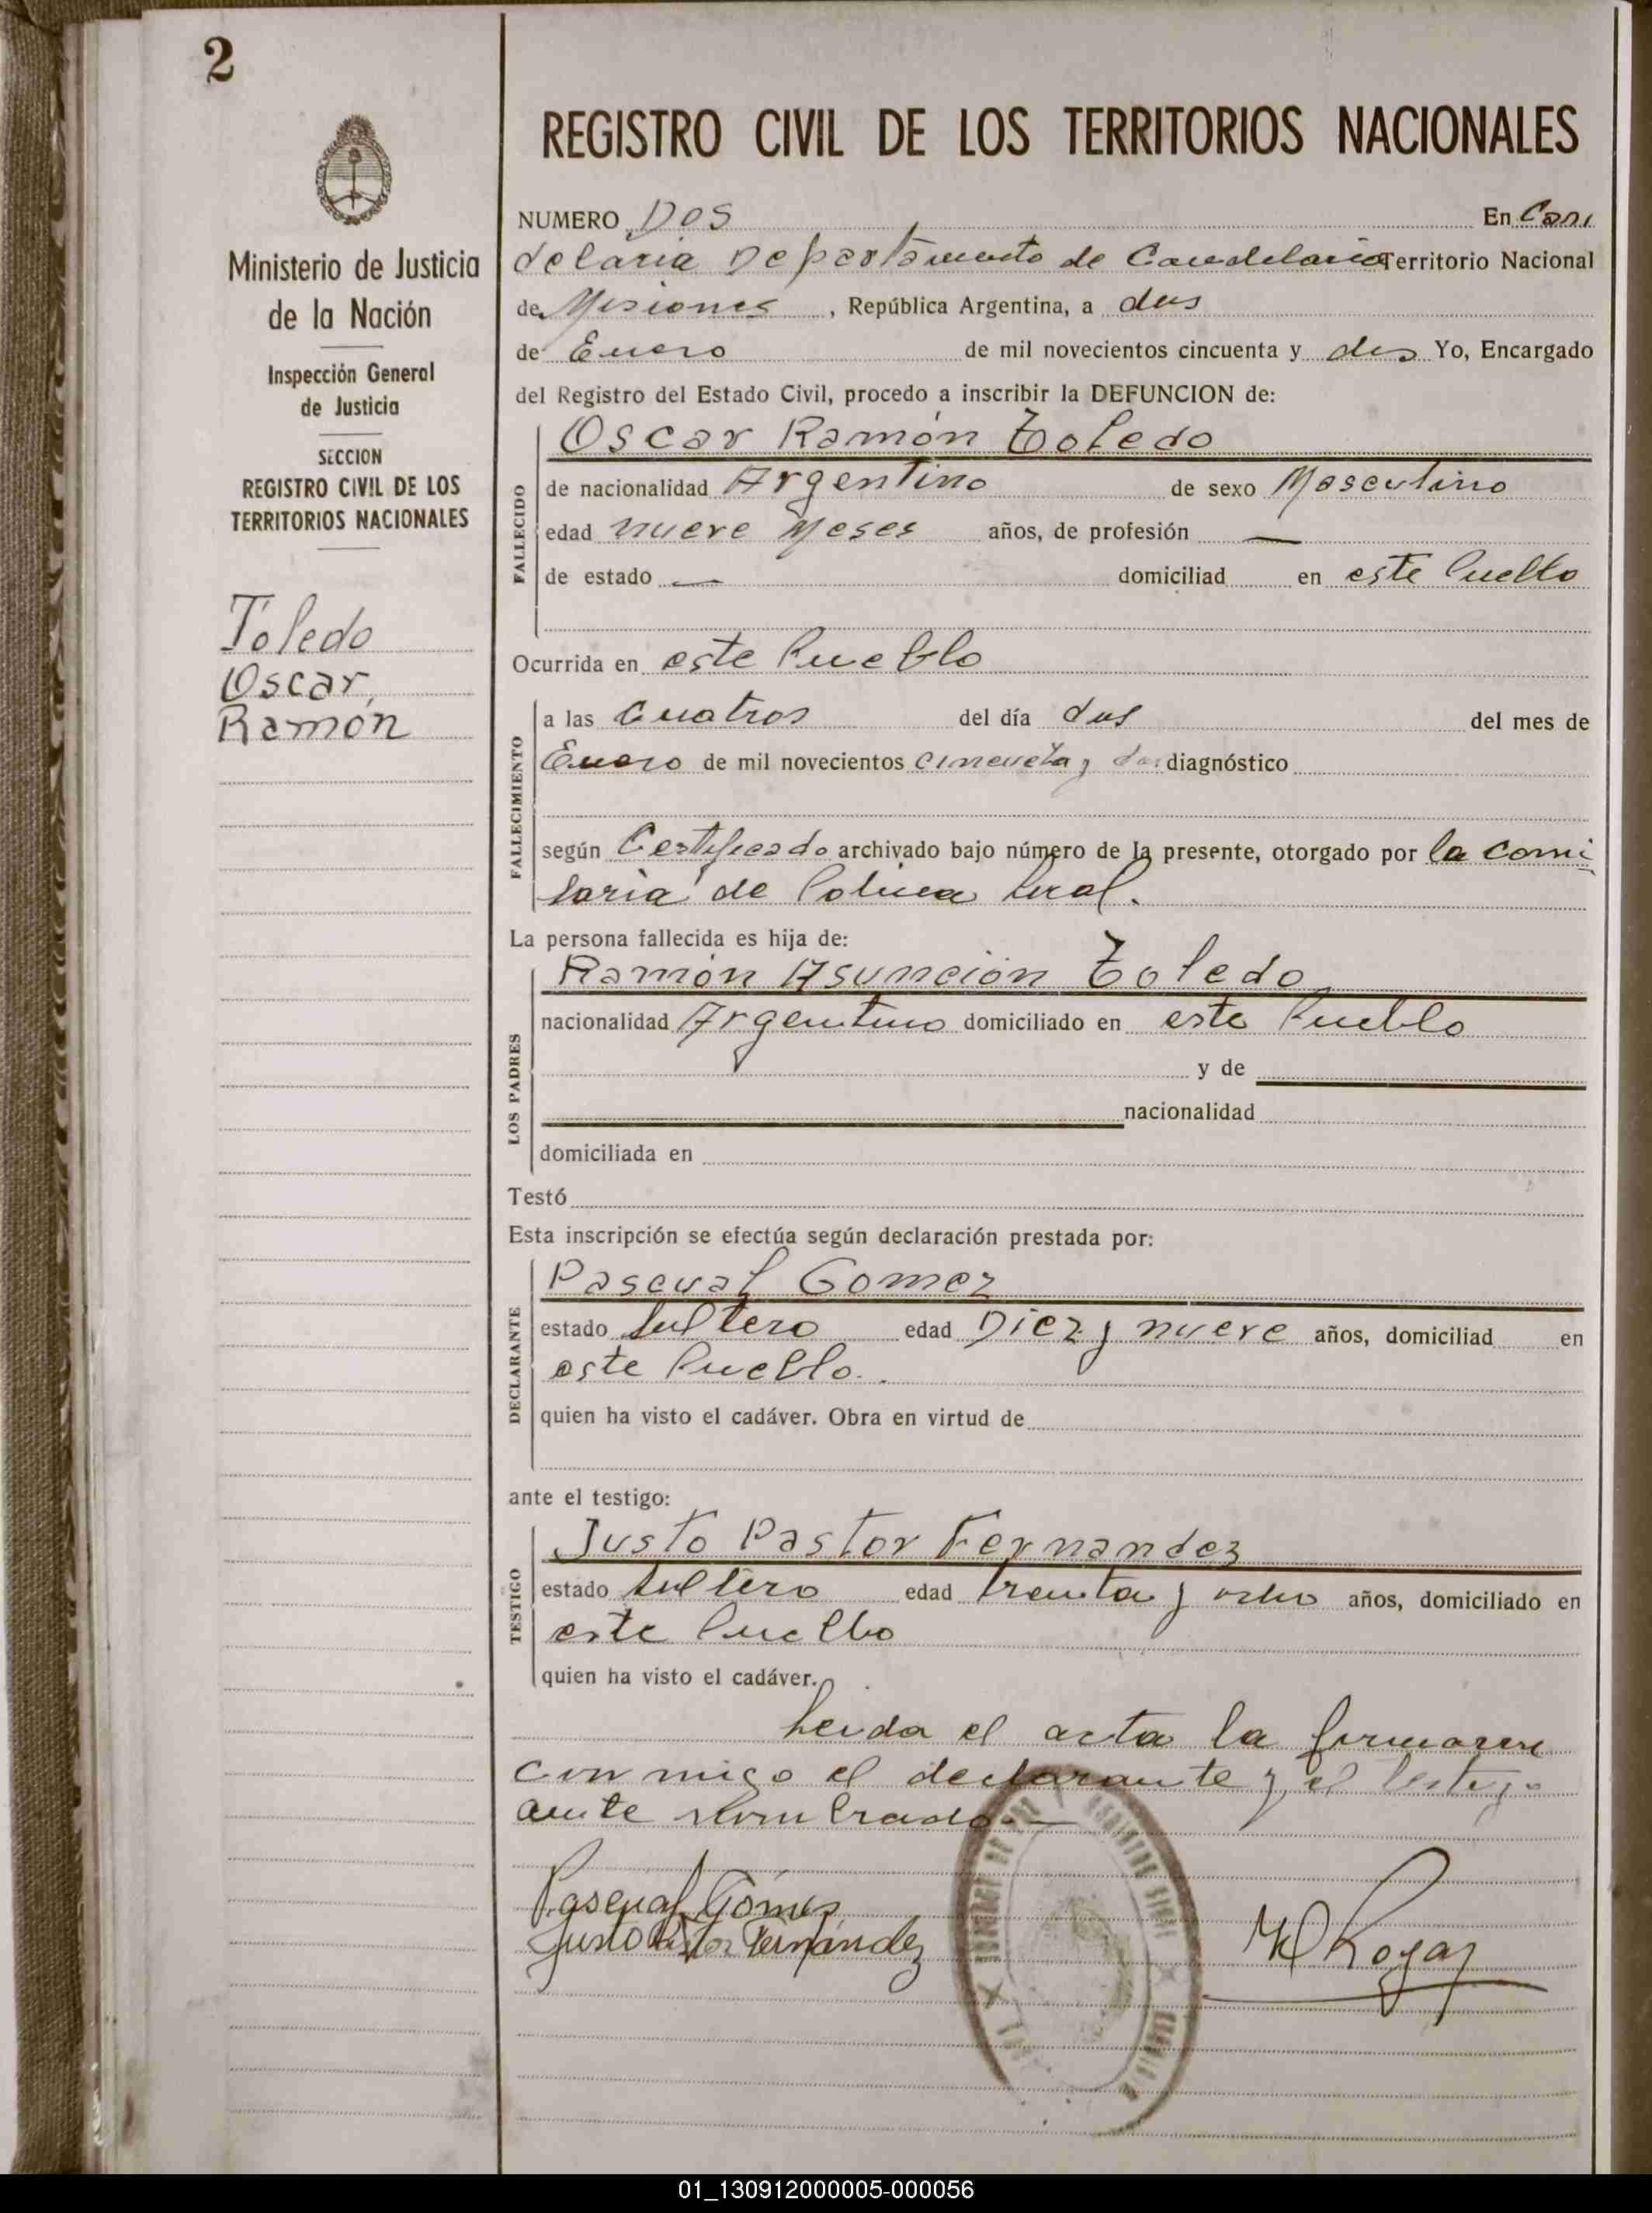 2
Ministerio de Justicia
de la Nación
Inspección General
de Justicia
SECCION
REGISTRO CIVIL DE LOS
TERRITORIOS NACIONALES
Toledo
Oscar,
Ramón
REGISTRO CIVIL DE LOS TERRITORIOS NACIONALES
NUMERO Dos En Can
delaria Departamento de Candelaria Territorio Nacional
de Misiones, República Argentina, a dos
de Enero de mil novecientos cincuenta y dos Yo, Encargado
del Registro del Estado Civil, procedo a inscribir la DEFUNCION de:
FALLECIDO
Oscar Ramón Toledo
de nacionalidad Argentino de sexo Masculino
edad nueve Meses años, de profesión —
de estado — domiciliad en este Pueblo
Ocurrida en este Pueblo
FALLECIMIENTO
a las Cuatros del día dos del mes de
Enero de mil novecientos cincuenta y dos diagnóstico
según Certificado archivado bajo número de la presente, otorgado por la comi
saria de Policia local.
La persona fallecida es hija de:
LOS PADRES
Ramón Asunción Toledo
nacionalidad Argentino domiciliado en este Pueblo
y de
nacionalidad
domiciliada en
Testó
Esta inscripción se efectúa según declaración prestada por:
DECLARANTE
Pascual Gomez
estado Soltero edad Diez y nueve años, domiciliad en
este Pueblo.
quien ha visto el cadáver. Obra en virtud de
ante el testigo:
TESTIGO
Justo Pastor Fernandez
estado soltero edad treinta y ocho años, domiciliado en
este Pueblo
quien ha visto el cadáver.
Leida el acta la firmaron
con migo el declarante y el testigo
ante nombrado.—
Pascual Gómes
Justo Pastor Fernández
01_130912000005-000056